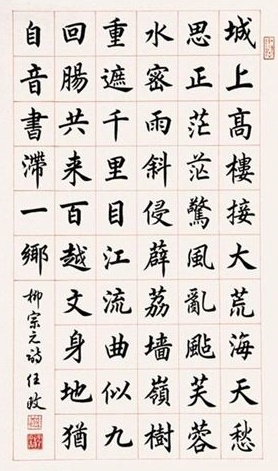 城上高樓接大荒海天愁
思正茫茫驚風亂颭芙蓉
水密雨斜侵薜荔墻嶺樹
重遮千里目江流曲似九
回腸共来百越文身地猶
自音書滯一鄉
柳宗元詩任政